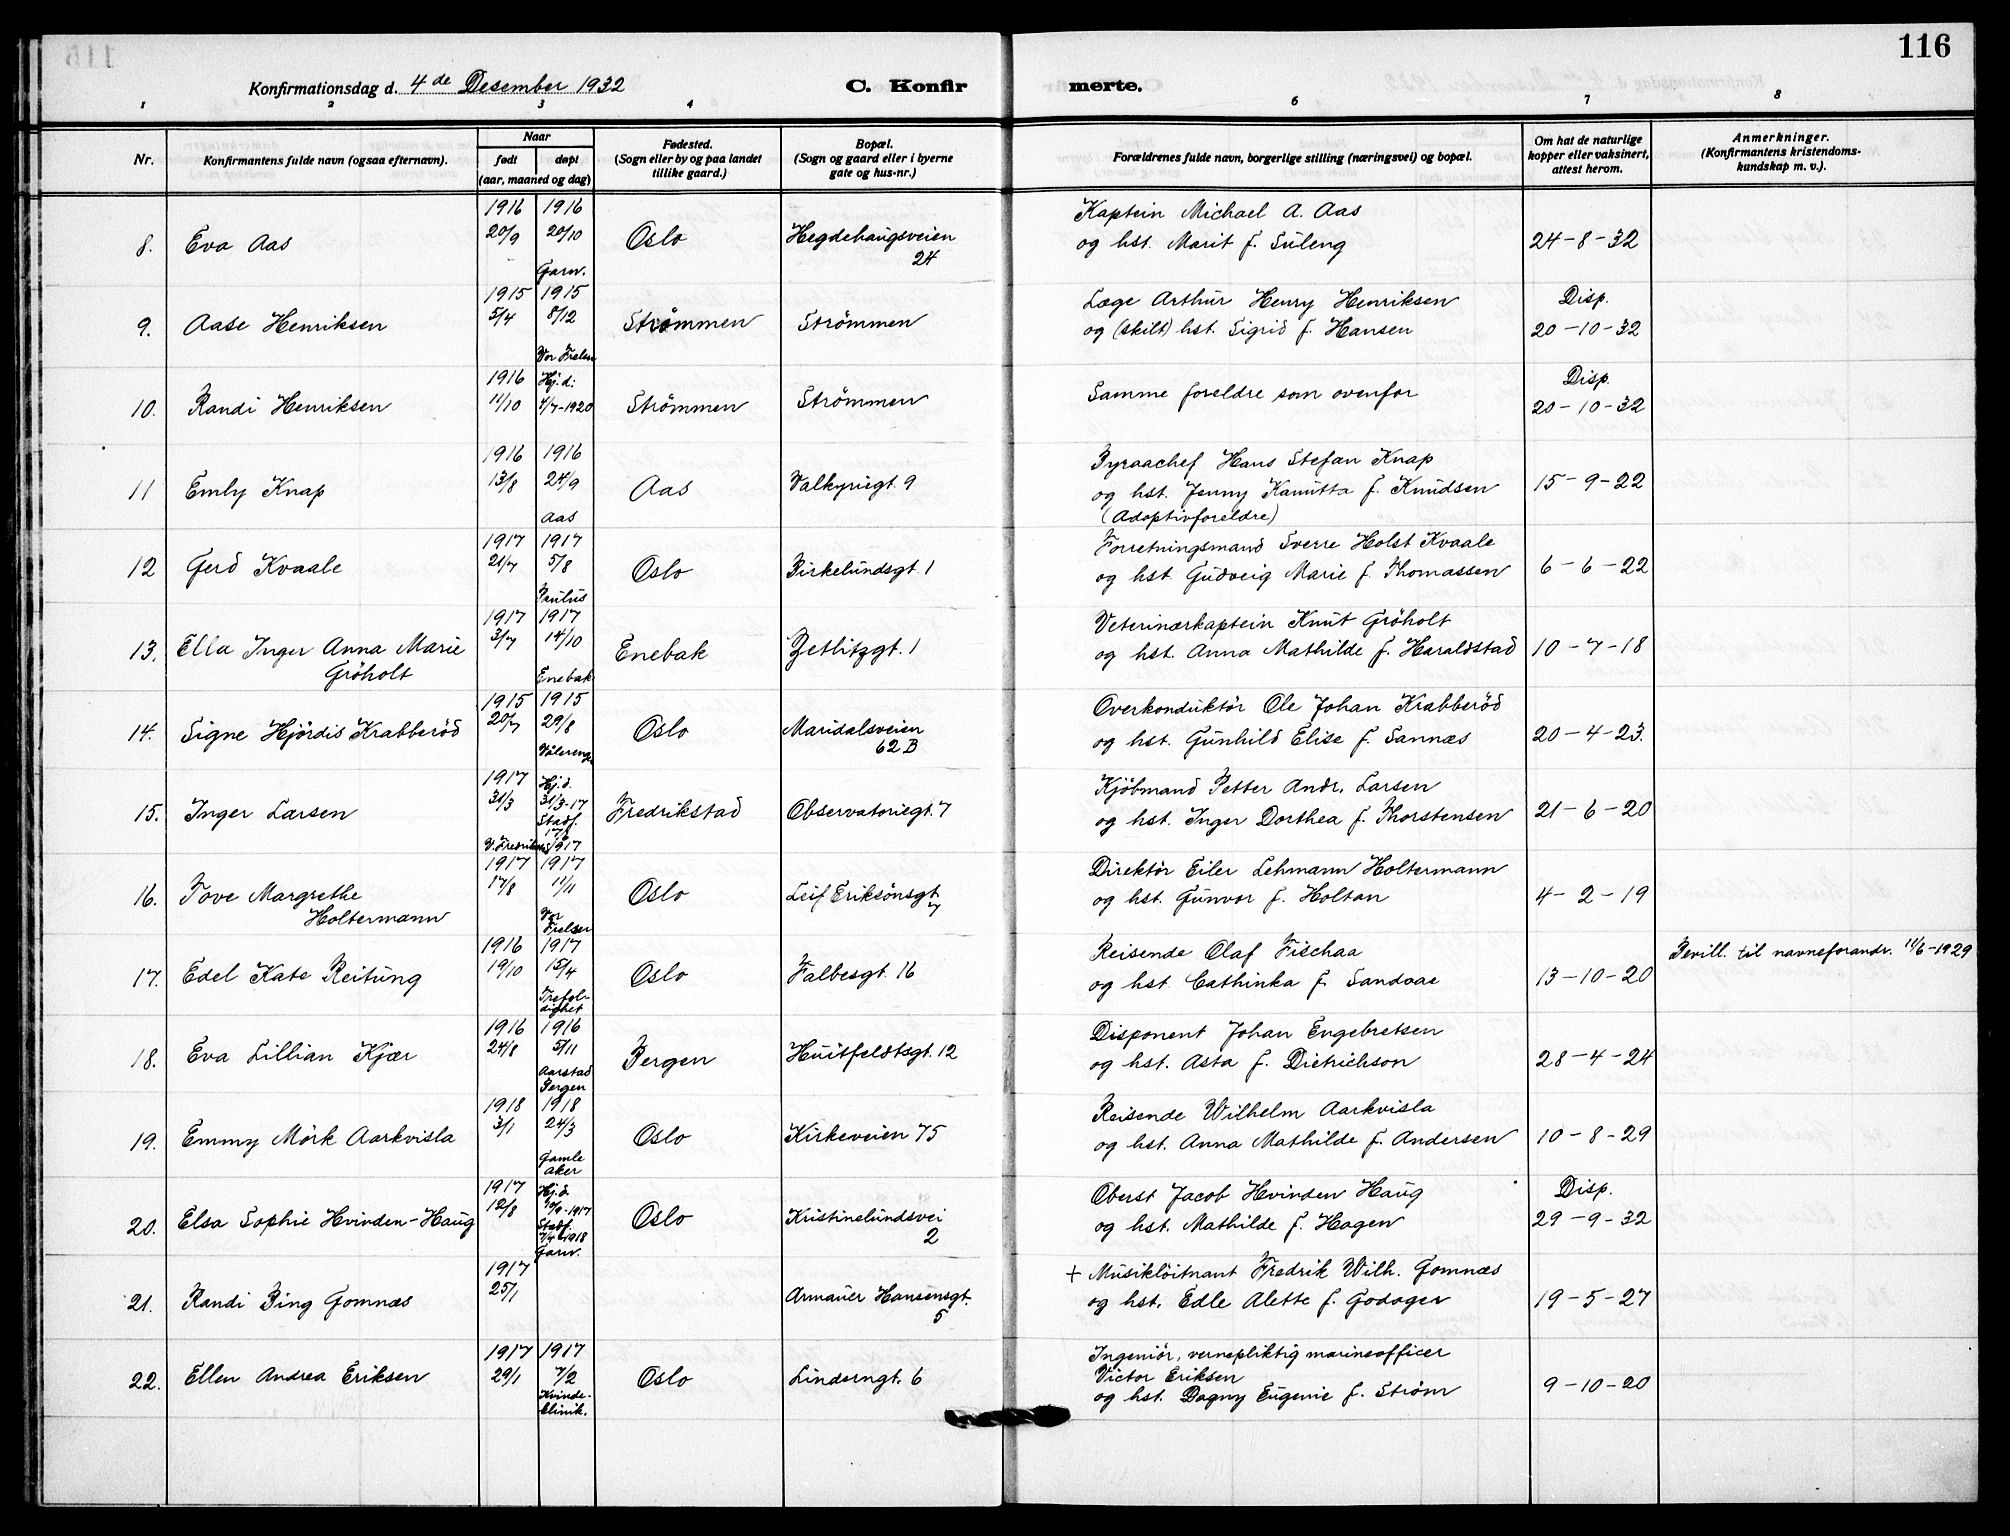 116
Konfirmationsdag d. 4de Desember 1932
C. Konfirmerte.
1 2 3 4 6 7 8
Nr.
Konfirmantens fulde navn (ogsaa efternavn).
Naar
født døpt
(aar, maaned og dag)
Fødested.
(Sogn eller by og paa landet
tillike gaard.)
Bopæl.
(Sogn og gaard eller i byerne
gate og hus-nr.)
Forældrenes fulde navn, borgerlige stilling (næringsvei) og bopæl.
Om hat de naturlige
kopper eller vaksinert,
attest herom.
Anmerkninger.
(Konfirmantens kristendoms-
kundskap m. v.).
8. Eva Aas
1916 20/9
1916 20/10 Garn.
Oslo
Hegdehaugsveien
24
Kaptein Michael A. Aas
og hst. Marit f. Suleng
24-8-32
9. Aase Henriksen
1915 5/4
1915 8/12 Vor Frelser
Strømmen
Strömmen
Læge Arthur Henry Henriksen
og (skilt) hst. Sigrid f. Hansen
Disp.
20-10-32
10. Randi Henriksen
1916 11/10
Hj. d: 4/7-1920
Strömmen
Strömmen
Samme foreldre som ovenfor
Disp.
20-10-32
11 Emly Knap
1916 13/8
1916 24/9 Aas
Aas
Valkyriegt 9
Byraachef Hans Stefan Knap
og hst. Jenny Kanutta f. Knudsen
(Adoptivforeldre)
15-9-22
12 Gerd Kvaale
1917 21/7
1917 5/8 Paulus
Oslo
Birkelundsgt. 1
Forretningsmand Sverre Holst Kvaale
og hst. Gudveig Marie f. Thomassen
6-6-22
13. Ella Inger Anna Marie
Gröholt
1917 3/7
1917 14/10 Enebak
Enebak
Zetlitzgt. 1
Veterinærkaptein Knut Gröholt
og hst. Anna Mathilde f. Haraldstad
10-7-18
14. Signe Hjördis Krabberöd
1915 20/7
1915 29/8 Vålerenga
Oslo
Maridalsveien
62 B
Overkonduktör Ole Johan Krabberöd
og hst. Gunhild Elise f. Sannæs
20-4-23.
15. Inger Larsen
1917 31/3
Hj. d. 31/3-17 Stadf. 17/6 1917
V. Fredrikstad
Fredrikstad
Observatoriegt. 7
Kjöbmand Petter Andr. Larsen
og hst. Inger Dorthea f. Thorstensen
21-6-20
16. Tove Margrethe
Holtermann
1917 17/8
1917 11/11 Vor Frelser
Oslo
Leif Eriksönsgt.
7
Direktör Eiler Lehmann Holtermann
og hst. Gunvor f. Holtan
4-2-19
17. Edel Kate Reitung
1916 19/10
1917 15/4 Trefol-
dighet
Oslo
Falbesgt. 16
Reisende Olaf Fischaa
og hst. Cathinka f. Sandaae
13-10-20
Bevill. til navneforandr. 11/6-1929
18. Eva Lillian Kjær
1916 24/8
1916 5/11 Aarstad
Bergen
Bergen
Huitfeldtsgt. 12
Disponent Johan Engebretsen
og hst. Asta f. Dietrichson
28-4-24
19. Emmy Mörk Aarkvisla
1918 3/1
1918 24/3 Gamle
Aker
Oslo
Kirkeveien 75
Reisende Wilhelm Aarkvisla
og hst. Anna Mathilde f. Andersen
10-8-29
20. Elsa Sophie Hvinden-Haug
1917 12/8
Hj. d. -1917 Stadf. 7/4-1918 Garn.
Oslo
Kristinelundsvei
2
Oberst Jacob Hvinden Haug
og hst. Mathilde f. Hagen
Disp.
29-9-32
21. Randi Bing Gomnæs
1917 25/1
Armauer Hansensgt.
5
+ Musiklöitnant Fredrik Wilh. Gomnæs
og hst. Edle Alette f. Godager
19-5-27
22. Ellen Andrea Eriksen
1917 29/1
1917 7/2 Kvinde-
klinik.
Oslo
Linderngt. 6
Ingeniör, vernepliktig marineofficer
Victor Eriksen
og hst. Dagny Eugenie f. Ström
9-10-20